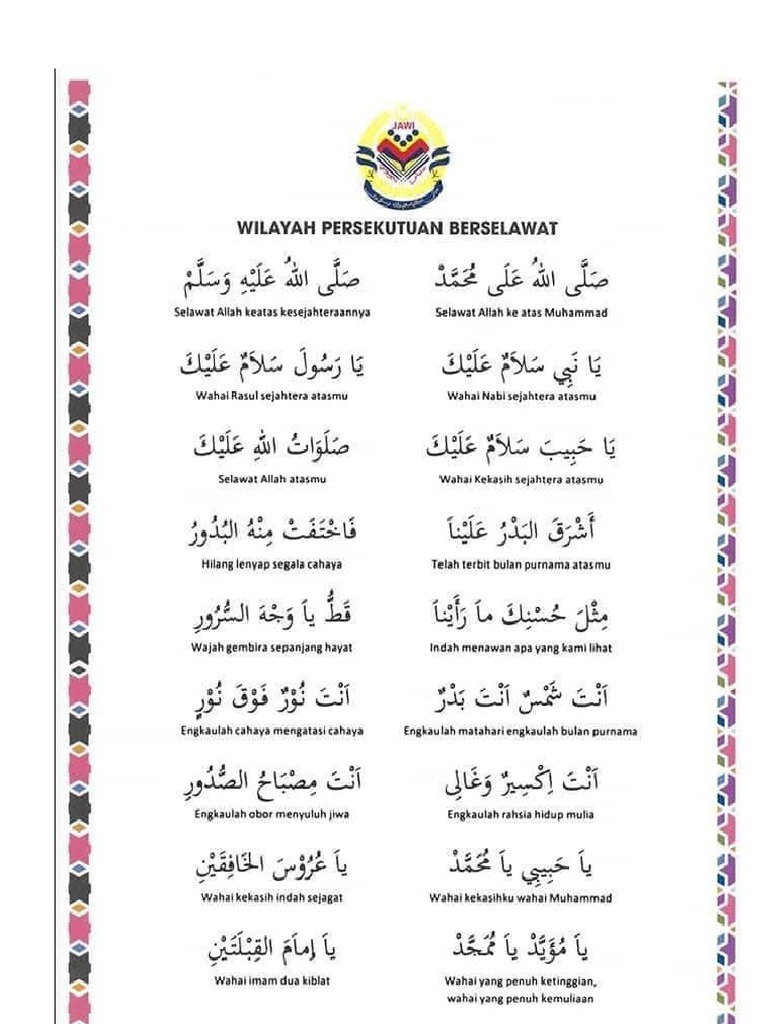 JAWI
WILAYAH PERSEKUTUAN BERSELAWAT
صَلَّى اللهُ عَلَى مُحَمَّدْ
صَلَّى اللهُ عَلَيْهِ وَسَلَّمْ
Selawat Allah ke atas Muhammad
Selawat Allah keatas kesejahteraannya
يَا نَبِي سَلاَمٌ عَلَيْكَ
يَا رَسُولَ سَلاَمٌ عَلَيْكَ
Wahai Nabi sejahtera atasmu
Wahai Rasul sejahtera atasmu
يَا حَبِيبَ سَلاَمٌ عَلَيْكَ
صَلَوَاتُ اللهِ عَلَيْكَ
Wahai Kekasih sejahtera atasmu
Selawat Allah atasmu
أَشْرَقَ البَدْرُ عَلَيْناَ
فَاخْتَفَتْ مِنْهُ البُدُورُ
Telah terbit bulan purnama atasmu
Hilang lenyap segala cahaya
مِثْلَ حُسْنِكَ ماَ رَأَيْناَ
قَطُّ ياَ وَجْهَ السُّرُورِ
Indah menawan apa yang kami lihat
Wajah gembira sepanjang hayat
اَنْتَ شَمْسٌ اَنْتَ بَدْرٌ
اَنْتَ نُوْرٌ فَوْقَ نُوْرٍ
Engkaulah matahari engkaulah bulan purnama
Engkaulah cahaya mengatasi cahaya
اَنْتَ اِكْسِيرٌ وَغَالِى
اَنْتَ مِصْبَاحُ الصُّدُورِ
Engkaulah rahsia hidup mulia
Engkaulah obor menyuluh jiwa
ياَ حَبِيبِي ياَ مُحَمَّدْ
ياَ عُرُوْسَ الخَافِقَيْنِ
Wahai kekasihku wahai Muhammad
Wahai kekasih indah sejagat
ياَ مُؤَيَّدْ ياَ مُمَجَّدْ
ياَ إِماَمَ القِبْلَتَيْنِ
Wahai yang penuh ketinggian,
wahai yang penuh kemuliaan
Wahai imam dua kiblat